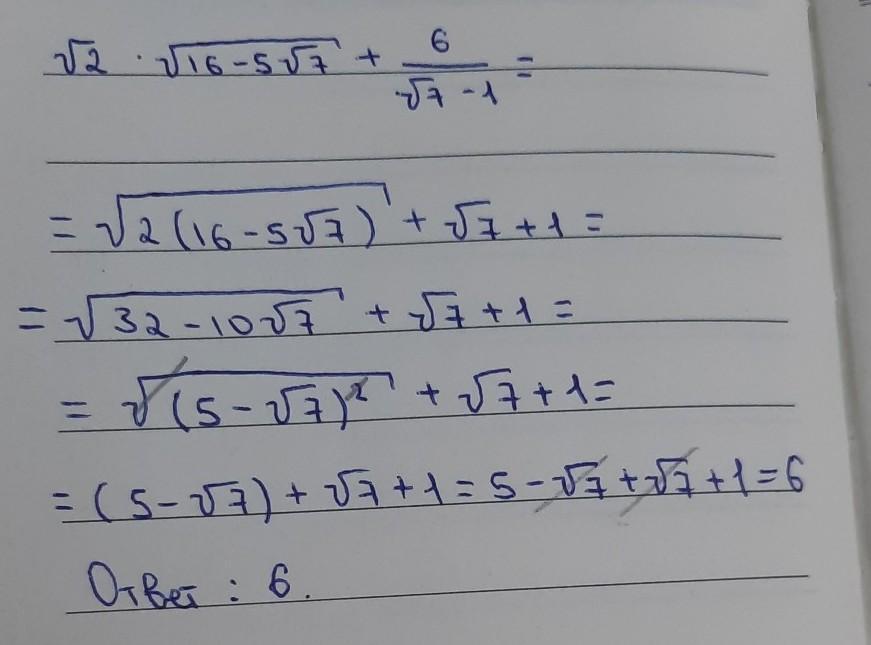 √2 · √(16-5√7) + 6/(√7-1) =
= √(2(16-5√7)) + √7+1 =
= √(32-10√7) + √7+1 =
= √((5-√7)²) + √7+1=
=(5-√7)+√7+1=5-√7+√7+1=6
Ответ : 6.